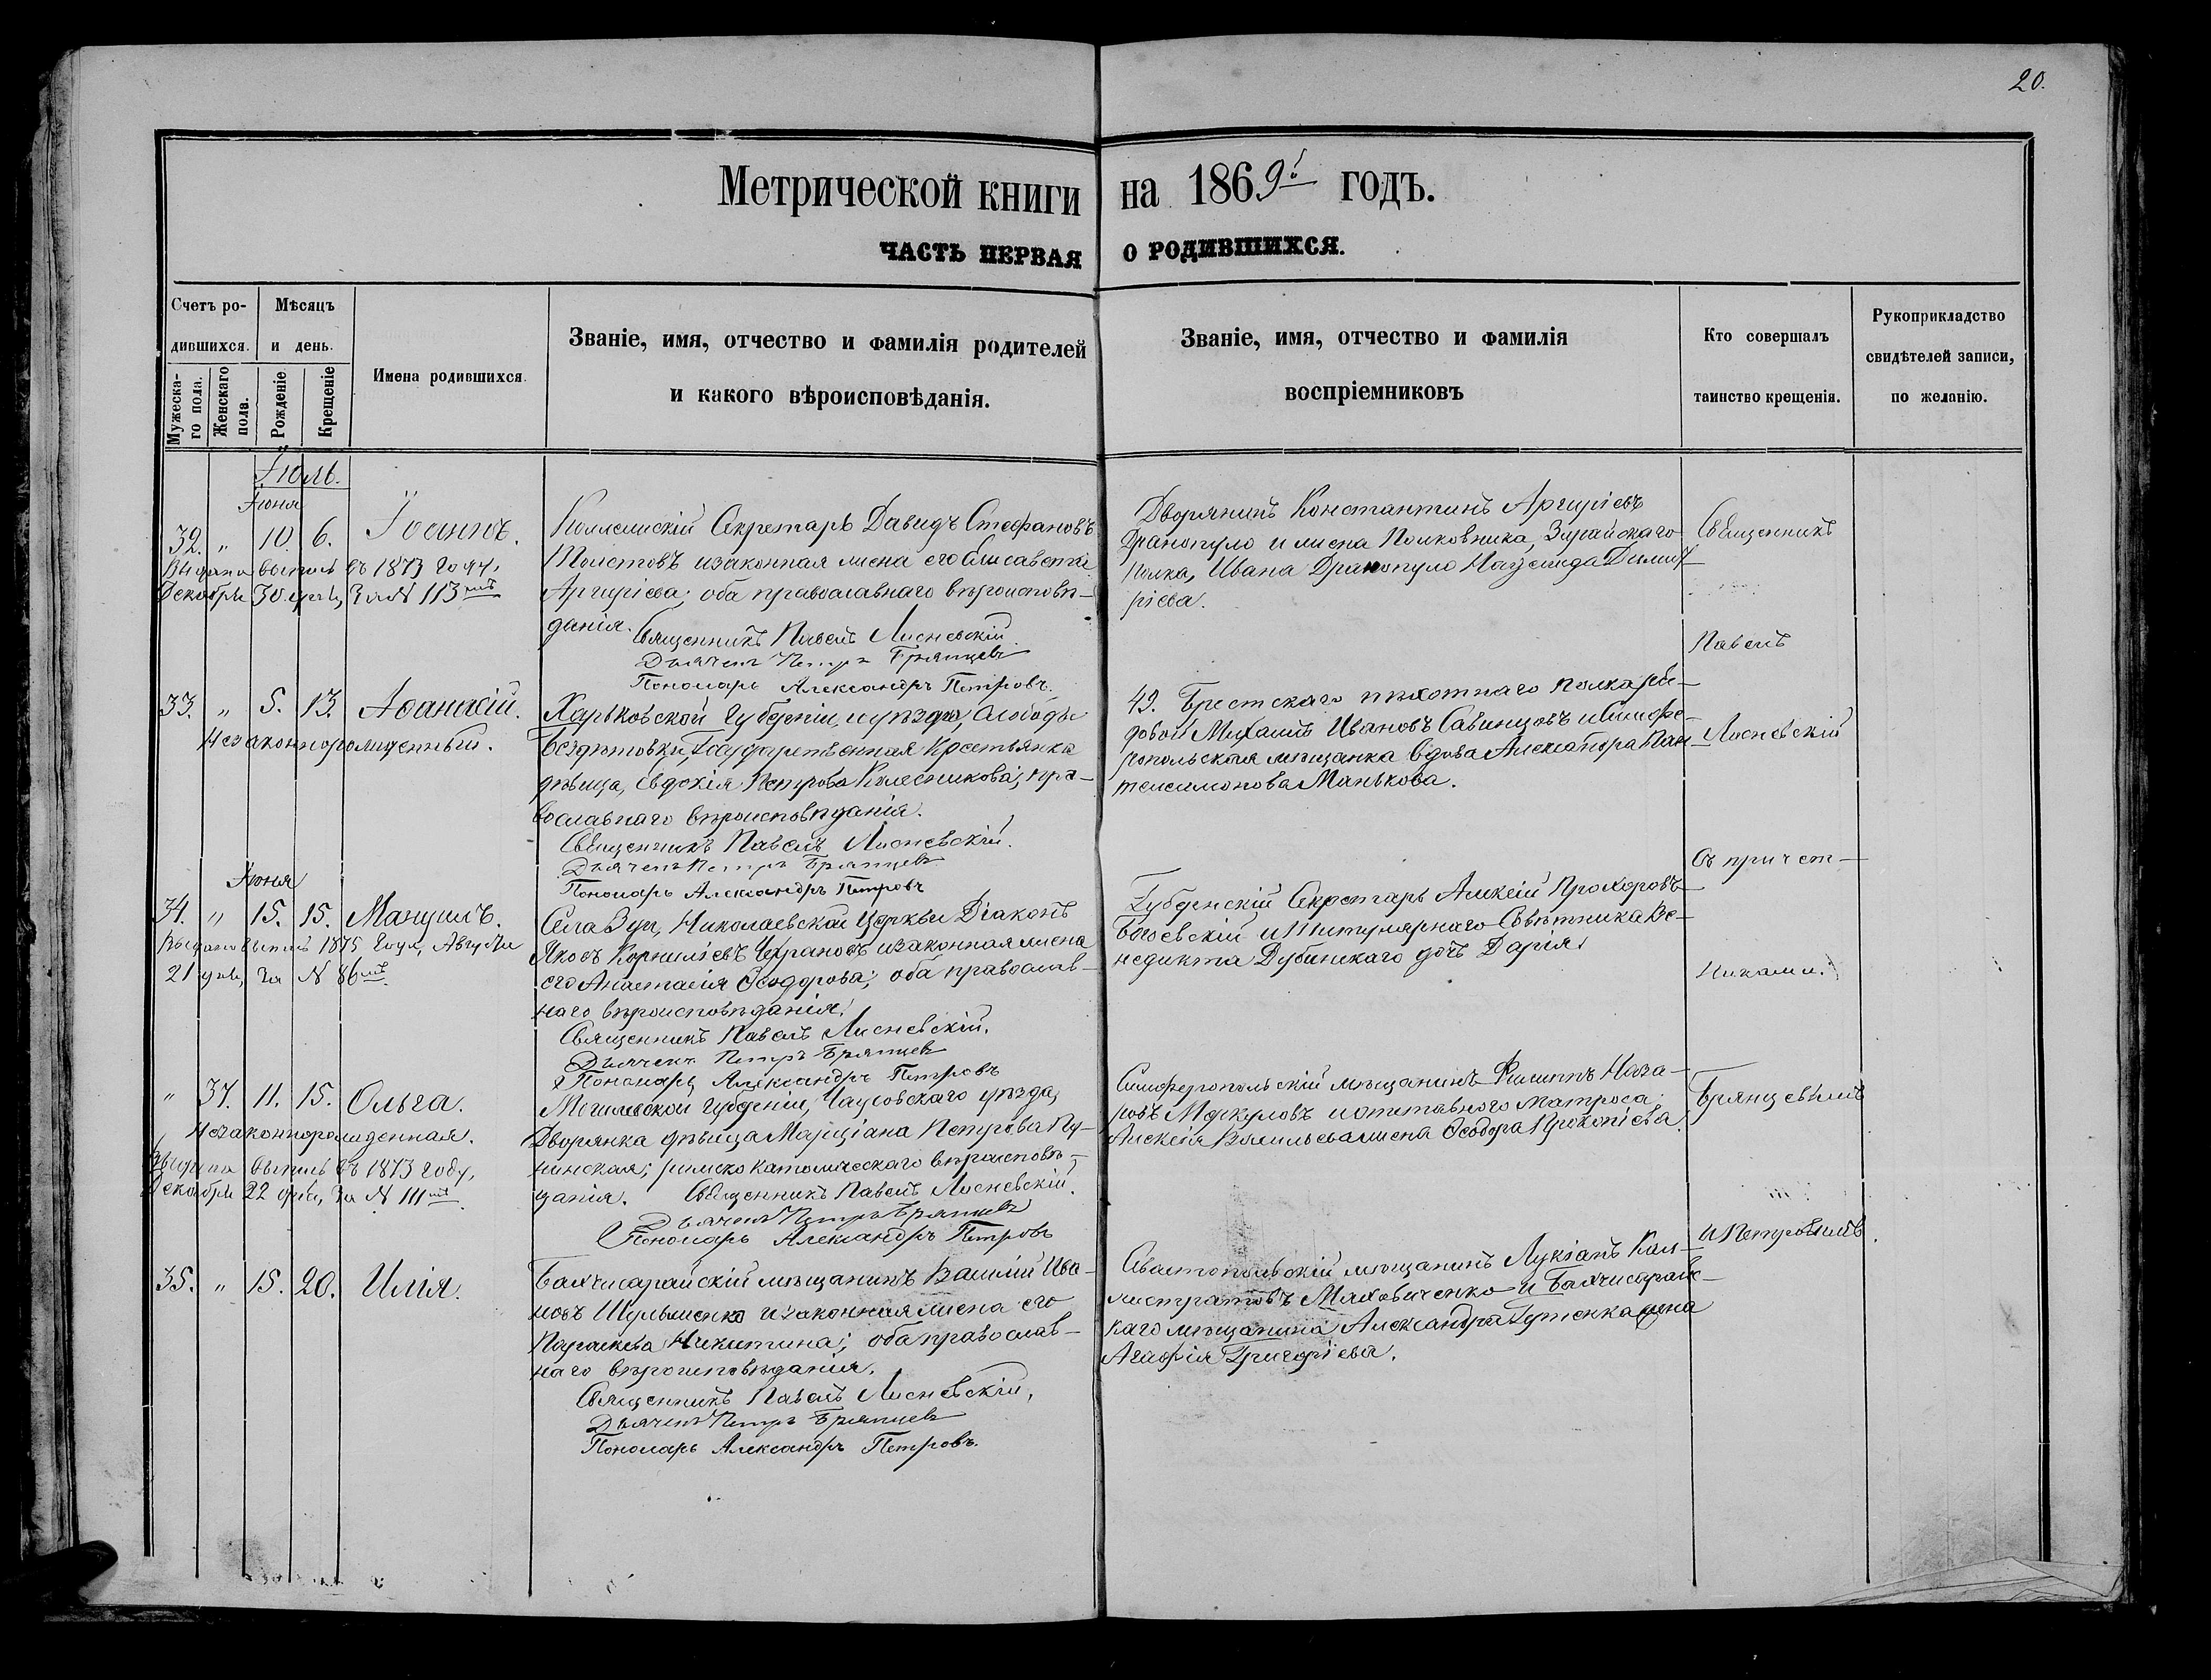 20.
Метрической книги на 1869й годъ.
ЧАСТЬ ПЕРВАЯ О РОДИВШИХСЯ.
Счетъ родившихся.
Мужескаго пола.
Женскаго пола.
Мѣсяцъ и день.
Рожденіе
Крещеніе
Имена родившихся.
Званіе, имя, отчество и фамилія родителей
и какого вѣроисповѣданія.
Званіе, имя, отчество и фамилія
воспріемниковъ
Кто совершалъ
таинство крещенія.
Рукоприкладство
свидѣтелей записи,
по желанію.
Іюль.
Іюня
32. " 10. 6. Іоаннъ.
Выдана выпись въ 1873 году,
Декабря 30 дня, за N 113мъ
Коллежскій Секретарь Давидъ Стефановъ
Толстовъ и законная жена его Елисавета
Аргирieва; оба православнаго вѣроисповѣ-
данія.
Священникъ Павелъ Лисневскій
Дьячекъ Петръ Брянцевъ
Пономарь Александръ Петровъ.
Дворянинъ Константинъ Аргиріевъ
Дранопуло и жена Полковника,
полка, Ивана Драпопуло Димит-
ріева.
33. " 5. 13. Аѳанасій.
Незаконнорожденный.
Харьковской Губерніи и уѣзда, Слободы
Безлюдовки, Государственная Крестьянка
дѣвица, Евдокія Петрова Колесникова; пра-
вославнаго вѣроисповѣданія.
Священникъ Павелъ Лисневскій.
Дьячекъ Петръ Брянцевъ
Пономарь Александръ Петровъ
49. Брестскаго пѣхотнаго полка ря-
довой Михаилъ Ивановъ Савинцовъ и Симфе-
ропольская мѣщанка вдова Александра Пан-
телеимонова Манькова.
Іюня
34. " 15. 15. Мануилъ.
Выдана выпись 1875 года, Августа
21 дня, за N 86мъ
Села Зуи, Николаевской Церкви Діаконъ
Яковъ Корниліевъ Чехрановъ и законная жена
его Анастасія Ѳеодорова; оба православ-
наго вѣроисповѣданія.
Священникъ Павелъ Лисневскій.
Дьячекъ Петръ Брянцевъ
Пономарь Александръ Петровъ
Губернскій Секретарь Алексій Прохоровъ
Богоевскій и Титулярнаго Совѣтника Ве-
недикта Дубинскаго дочь Дарія.
" 37. 11. 15. Ольга.
Незаконнорожденная.
Выдана выпись въ 1873 году,
Декабря 22 дня, за N 111мъ
Могилевской губерніи, Чаусовскаго уѣзда,
Дворянка дѣвица Марціана Петрова Пу-
нинская; римско католическаго вѣроисповѣ-
данія. Священникъ Павелъ Лисневскій.
Дьячекъ Петръ Брянцевъ
Пономарь Александръ Петровъ
Симферопольскій мѣщанинъ Филиппъ Наза-
ровъ Меркуловъ и отставного матроса
Алексія Васильева жена Ѳеодора Прокопіева.
35. " 15. 20. Илія.
Бахчисарайскій мѣщанинъ Василій Ива-
новъ Шульженко и законная жена его
Параскева Никитина; оба православ-
наго вѣроисповѣданія.
Священникъ Павелъ Лисневскій.
Дьячекъ Петръ Брянцевъ
Пономарь Александръ Петровъ.
Севастопольскій мѣщанинъ Лукіанъ Кал-
листратовъ Маховиченко и Бахчисарайс-
каго мѣщанина Александра Гутенка жена
Агафія Григоріева.
Священникъ
Павелъ
Лисневскій
съ причет-
никами.
Брянцевымъ
и Петровымъ.